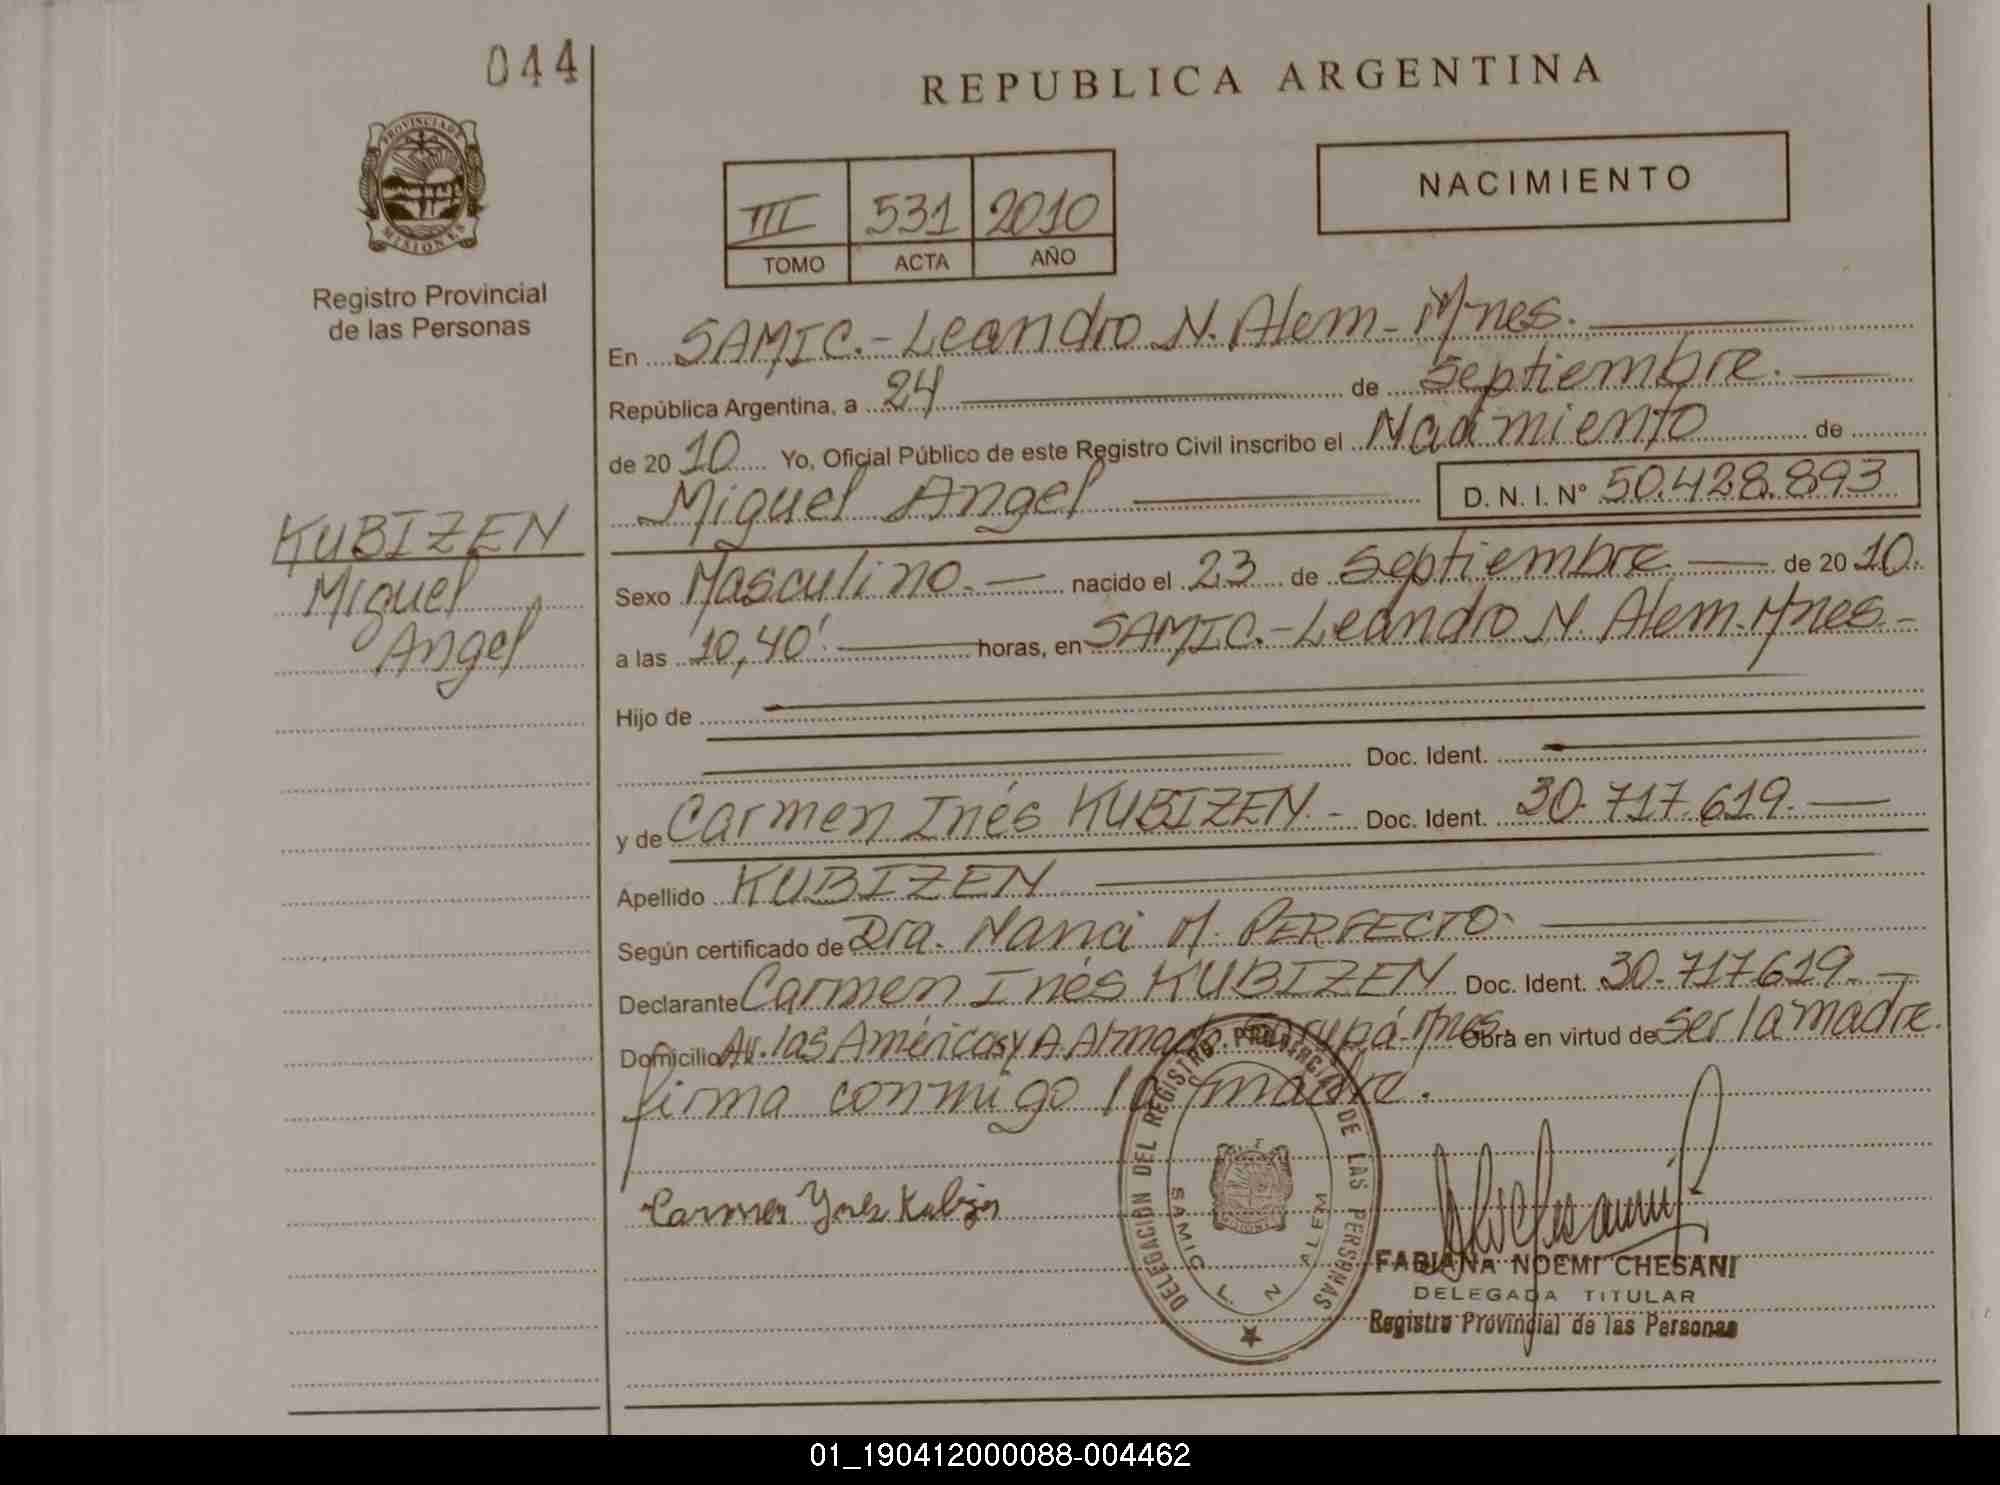 044
REPUBLICA ARGENTINA
PROVINCIA DE
MISIONES
Registro Provincial
de las Personas
III 531 2010
TOMO ACTA AÑO
NACIMIENTO
En SAMIC.-Leandro N. Alem-Mnes.
República Argentina, a 24 de Septiembre.
de 2010 Yo, Oficial Público de este Registro Civil inscribo el Nacimiento de
Miguel Angel D. N. I. Nº 50.428.893
KUBIZEN
Miguel
Angel
Sexo Masculino.- nacido el 23 de Septiembre de 2010.
a las 10,40' horas, en SAMIC.-Leandro N. Alem-Mnes-
Hijo de
Doc. Ident.
y de Carmen Inés KUBIZEN.- Doc. Ident. 30.717.619.
Apellido KUBIZEN
Según certificado de Dra. Nanci M. PERFECTO
Declarante Carmen Inés KUBIZEN Doc. Ident. 30.717.619.-
Domicilio Av. las Américas y A. Garupá-Mnes Obra en virtud de ser la madre.
firma conmigo la madre.
Carmen Ynes
DELEGACION DEL REGISTRO PROVINCIAL DE LAS PERSONAS
SAMIC L. N ALEM
MISIONES
FABIANA NOEMI CHESANI
DELEGADA TITULAR
Registro Provincial de las Personas
01_190412000088-004462